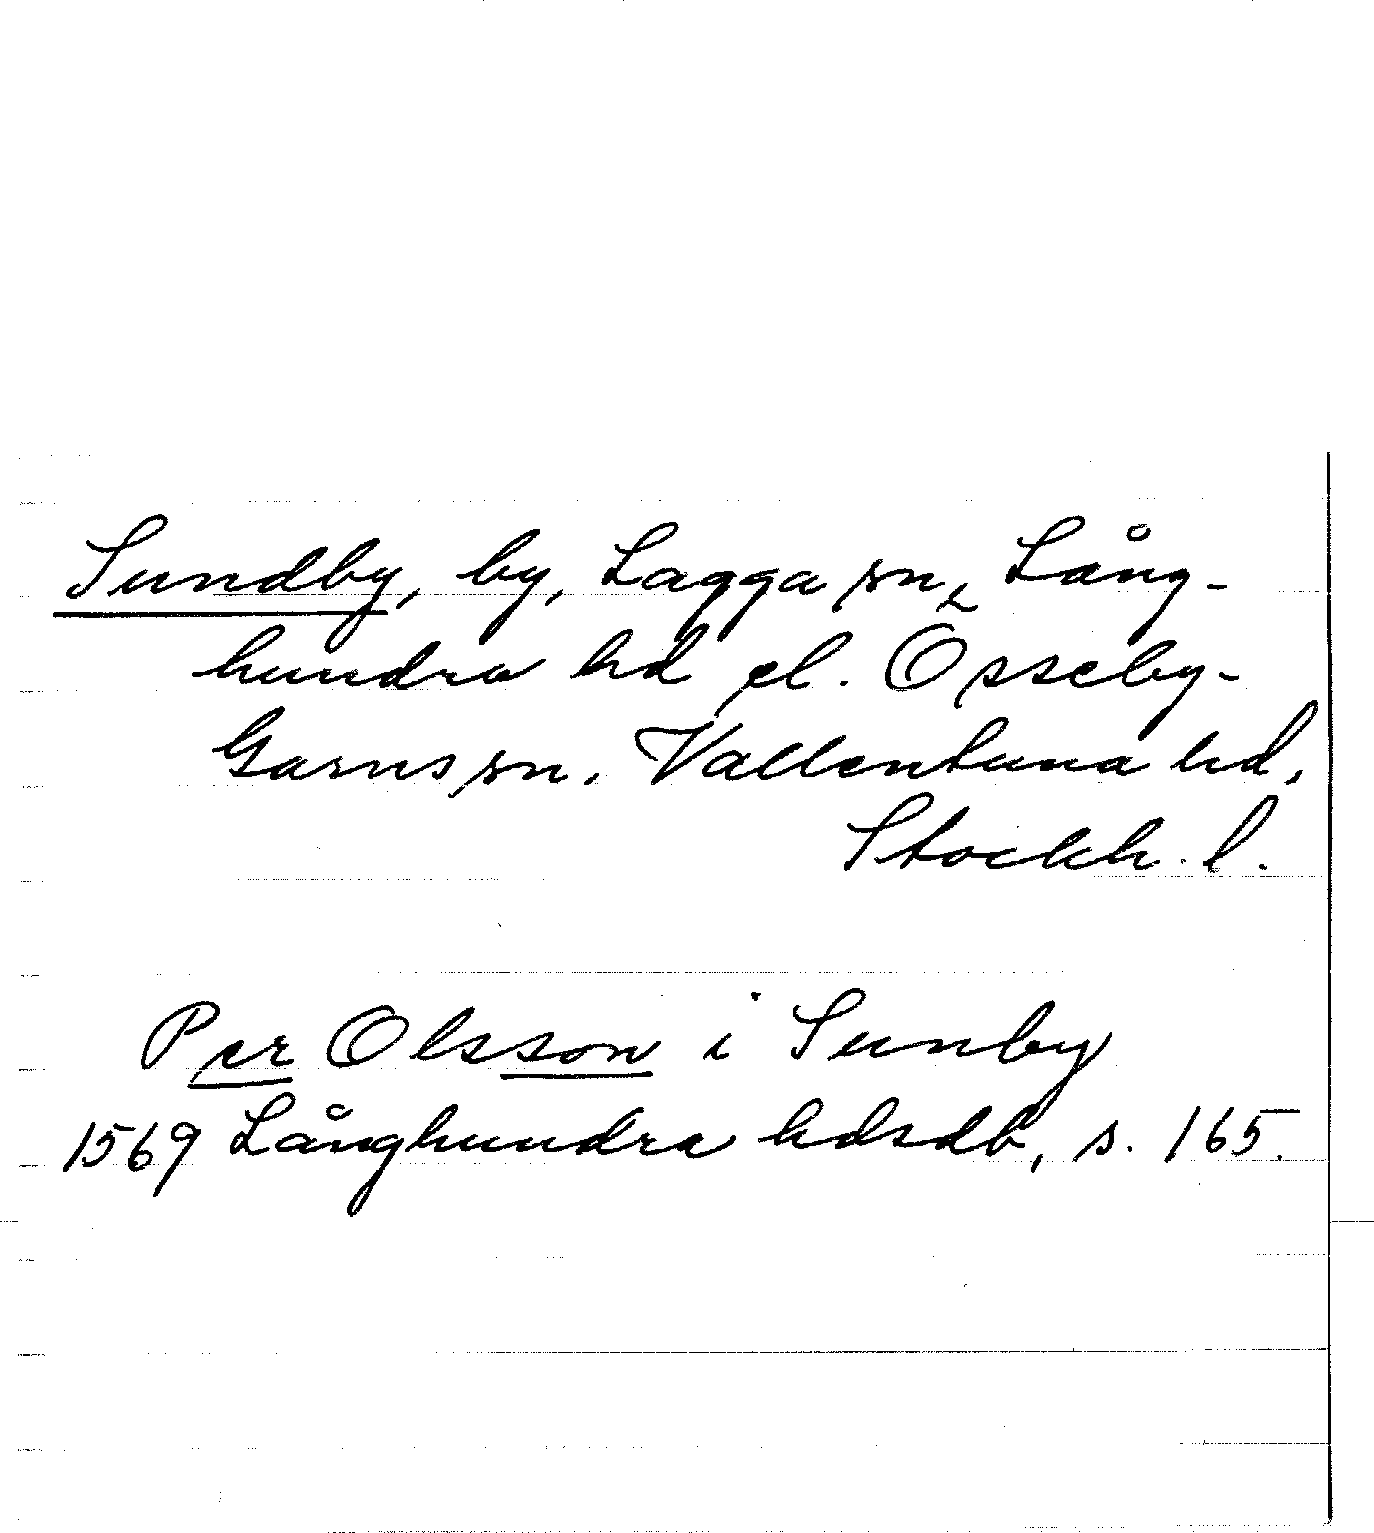 Sundby, by, Lagga sn, Lång-
hundra hd el. Össeby-
Garns sn. Vallentuna hd,
Stockh. l.
Per Olsson i Sunby
1569 Långhundra hdsdb, s. 165.